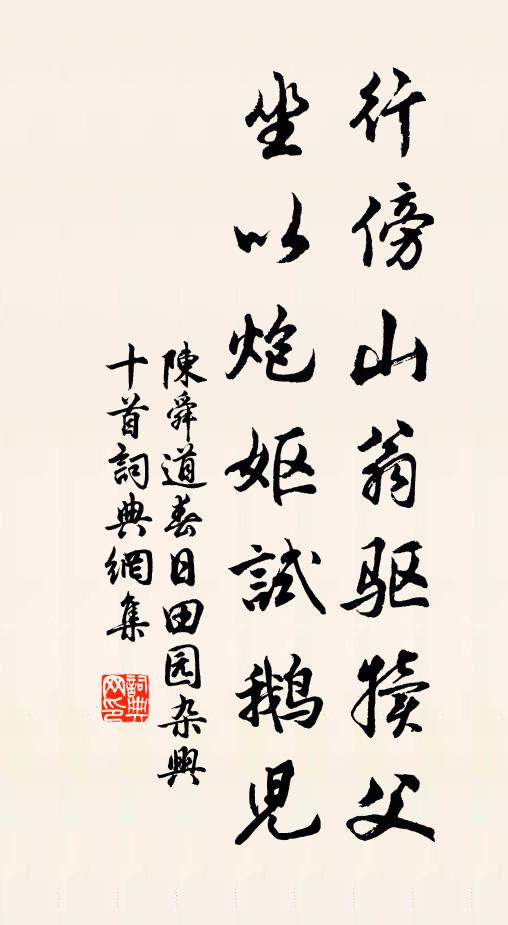 行傍山翁驱犊父
坐以炮妪試鵝児
陳舜道春日田园杂興
十首詞典網集
詞典网印